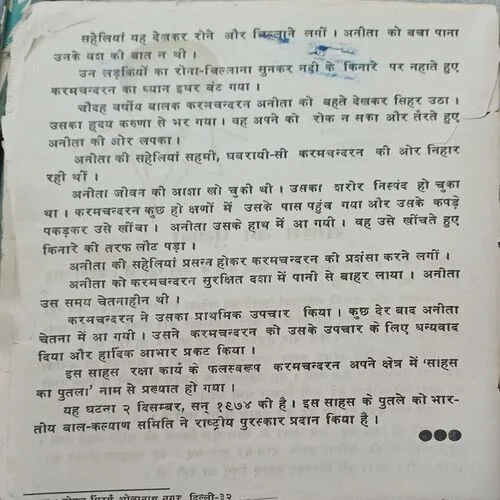 सहेलियां यह देखकर रोने और चिल्लाने लगीं । अनीता को बचा पाना
उनके वश की बात न थी ।
उन लड़कियों का रोना-चिल्लाना सुनकर नदी के किनारे पर नहाते हुए
करमचन्दरन का ध्यान इधर बंट गया ।
चौदह वर्षीय बालक करमचन्दरन अनीता को बहते देखकर सिहर उठा ।
उसका हृदय करुणा से भर गया । वह अपने को रोक न सका और तैरते हुए
अनीता की ओर लपका ।
अनीता की सहेलियां सहमी, घबरायी-सी करमचन्दरन की ओर निहार
रही थीं ।
अनीता जीवन की आशा खो चुकी थी । उसका शरीर निस्पंद हो चुका
था । करमचन्दरन कुछ ही क्षणों में उसके पास पहुंच गया और उसके कपड़े
पकड़कर उसे खींचा । अनीता उसके हाथ में आ गयी । वह उसे खींचते हुए
किनारे की तरफ लौट पड़ा ।
अनीता की सहेलियां प्रसन्न होकर करमचन्दरन की प्रशंसा करने लगीं ।
अनीता को करमचन्दरन सुरक्षित दशा में पानी से बाहर लाया । अनीता
उस समय चेतनाहीन थी ।
करमचन्दरन ने उसका प्राथमिक उपचार किया । कुछ देर बाद अनीता
चेतना में आ गयी । उसने करमचन्दरन को उसके उपचार के लिए धन्यवाद
दिया और हार्दिक आभार प्रकट किया ।
इस साहस रक्षा कार्य के फलस्वरूप करमचन्दरन अपने क्षेत्र में 'साहस
का पुतला' नाम से प्रख्यात हो गया ।
यह घटना २ दिसम्बर, सन् १९७४ की है । इस साहस के पुतले को भार-
तीय बाल-कल्याण समिति ने राष्ट्रीय पुरस्कार प्रदान किया है ।
भोलानाथ नगर, दिल्ली-३२